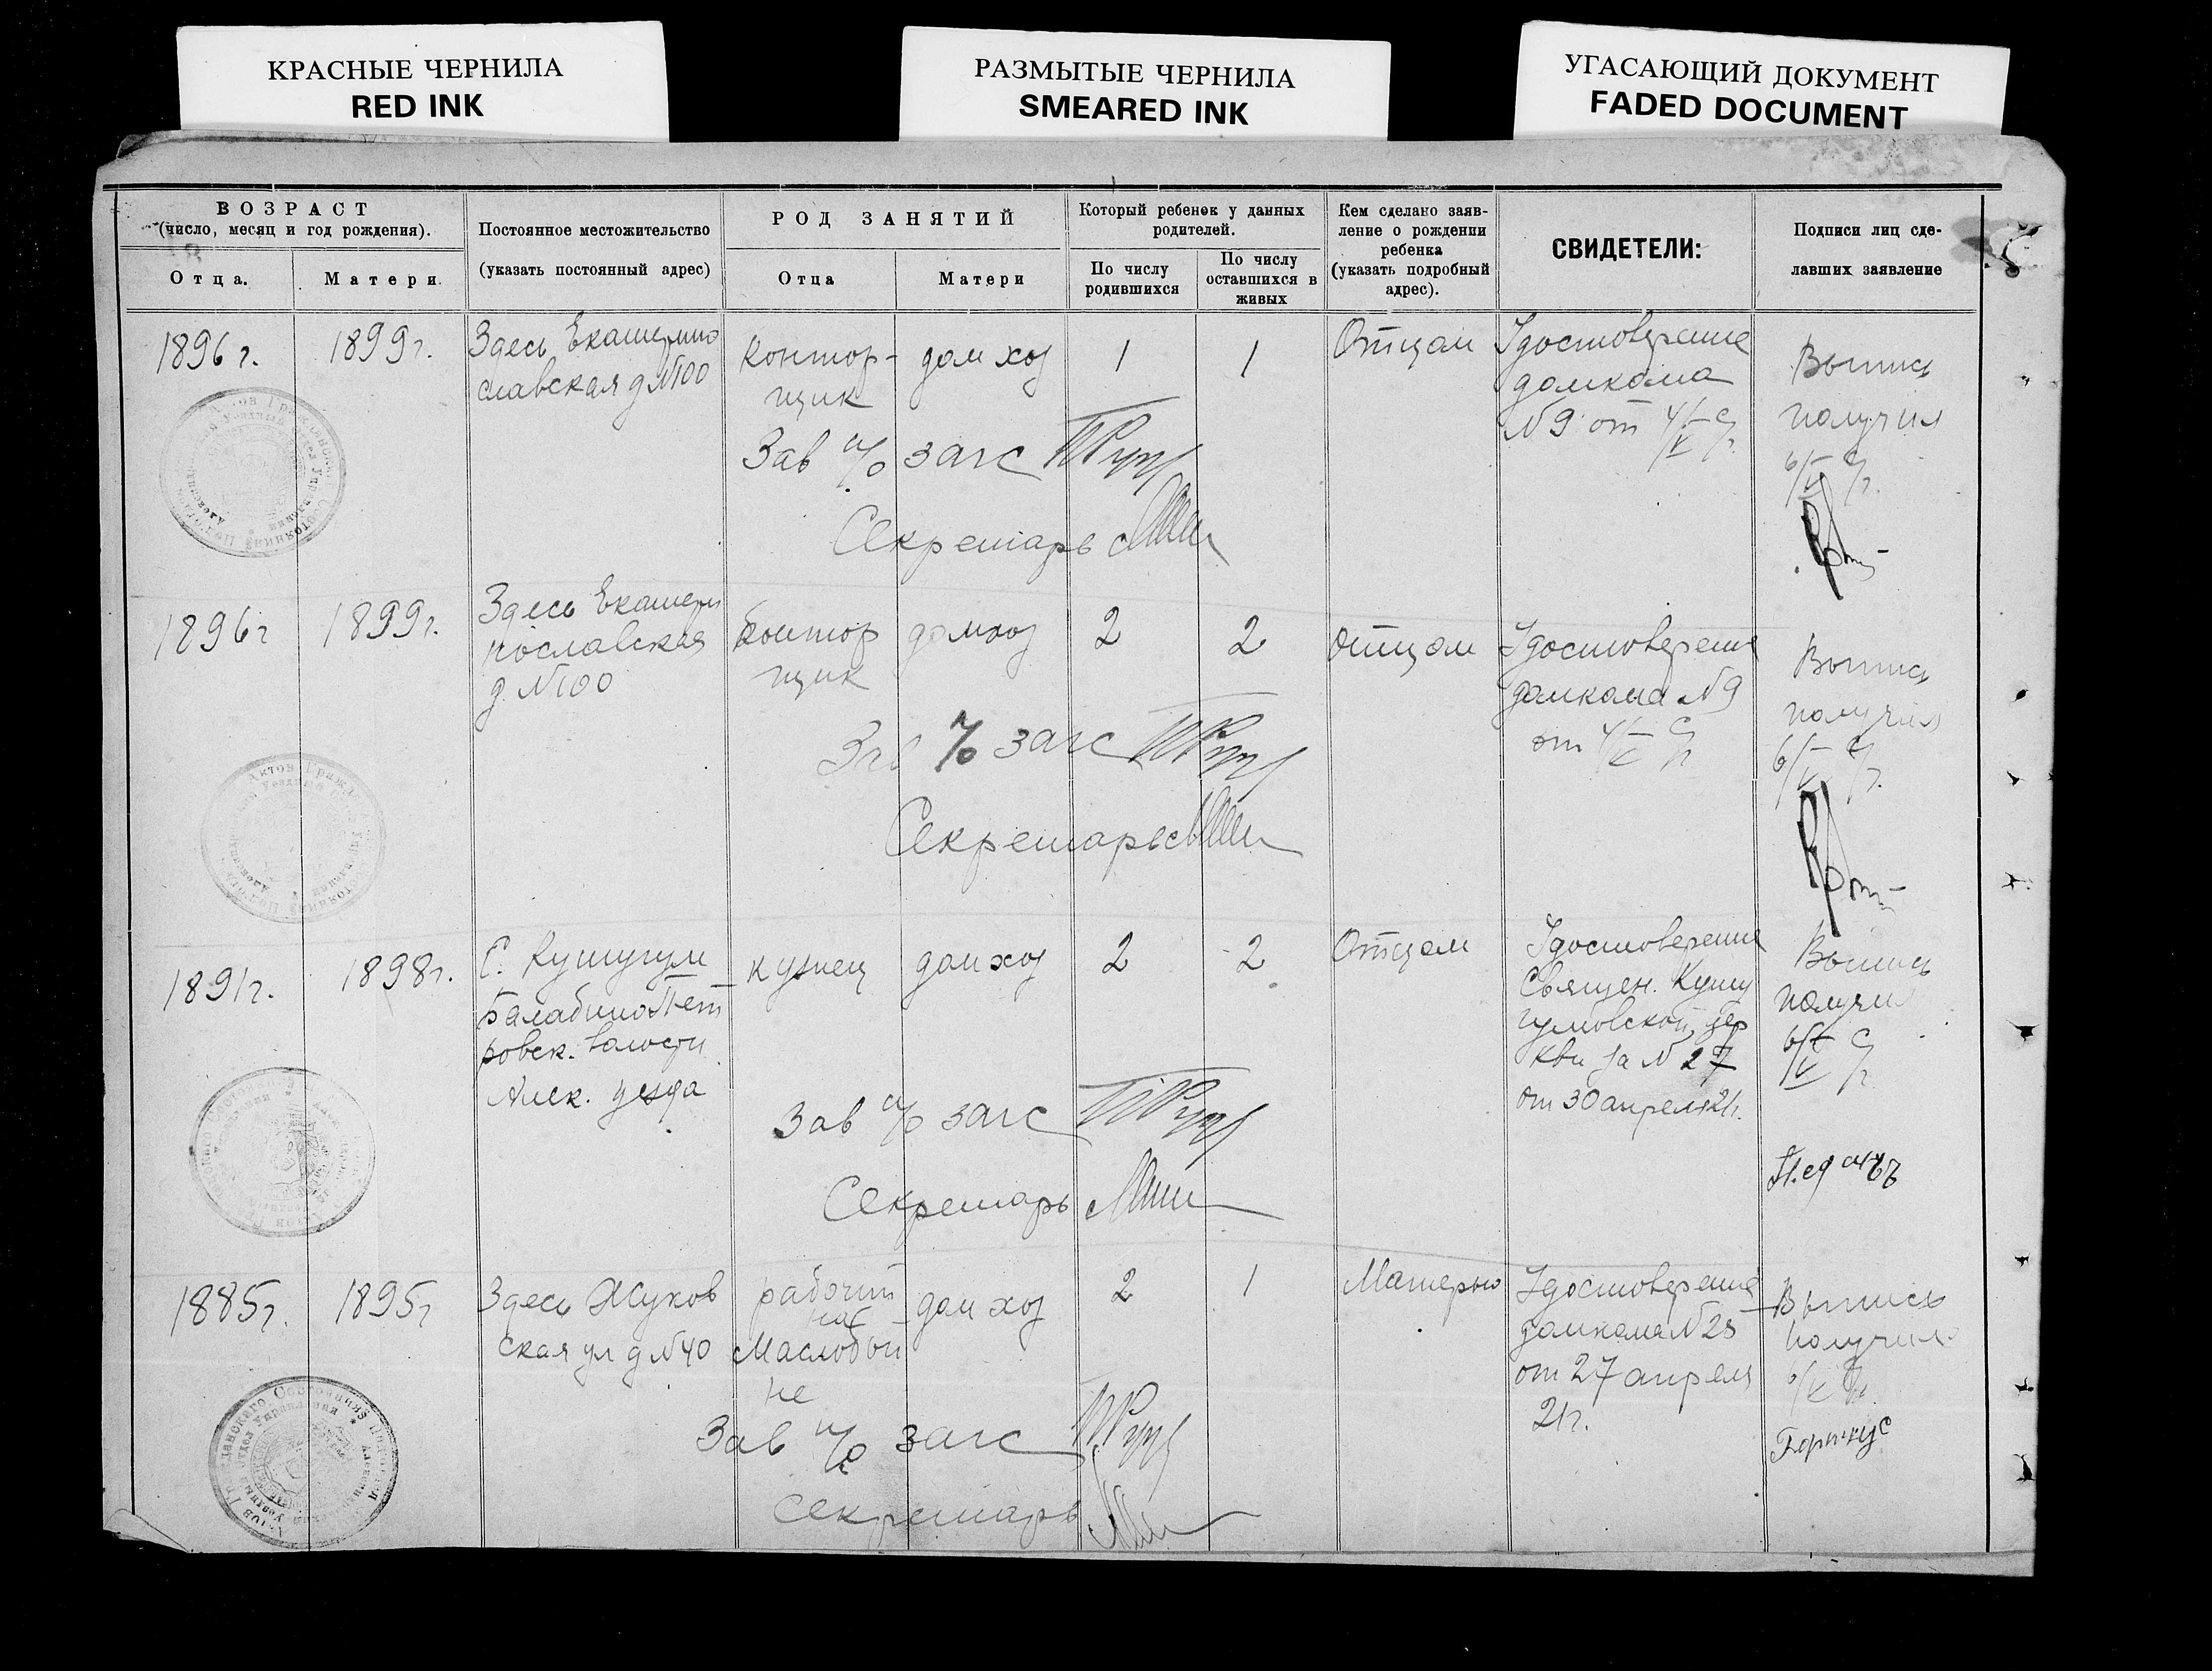 КРАСНЫЕ ЧЕРНИЛА
RED INK
РАЗМЫТЫЕ ЧЕРНИЛА
SMEARED INK
УГАСАЮЩИЙ ДОКУМЕНТ
FADED DOCUMENT
ВОЗРАСТ
(число, месяц и год рождения).
Отца.
Матери.
Постоянное местожительство
(указать постоянный адрес)
РОД ЗАНЯТИЙ
Отца
Матери
Который ребенок у данных
родителей.
По числу
родившихся
По числу
оставшихся в
живых
Кем сделано заяв-
ление о рождении
ребенка
(указать подробный
адрес).
СВИДЕТЕЛИ:
Подписи лиц сде-
лавших заявление
1896 г.
1899 г.
Здесь Екатерино
славская д №100
контор-
щик
дом хоз
1
1
Отцом
Удостоверение
домкома
№ 9 от 4/V с/г.
Выпись
получил
6/V с/г.
Зав п/о загс
Секретарь
1896 г
1899 г.
Здесь Екатери
нославская
д. №100
контор
щик
домхоз
2
2
отцом
Удостоверение
домкома №9
от 4/V с/г
Выпись
получил
6/V с/г.
Зав п/о загс
Секретарь
1891 г.
1898 г.
С. Кушугум
Балабино Пет
ровск. волости
Алек. уезда
кузнец
дом хоз
2
2
Отцом
Удостоверение
Священ. Кушу
гумовской цер
кви за № 27
от 30 апреля 21г.
Выпись
получил
6/V с/г.
Зав п/о загс
Секретарь
1885 г.
1895 г
Здесь Жуков
ская ул д №40
рабочий
на
Маслобой
не
дом хоз
2
1
Матерью
Удостоверение
домкома №25
от 27 апреля
21 г.
Выпись
получила
6/V с/г.
Зав п/о загс
Секретарь